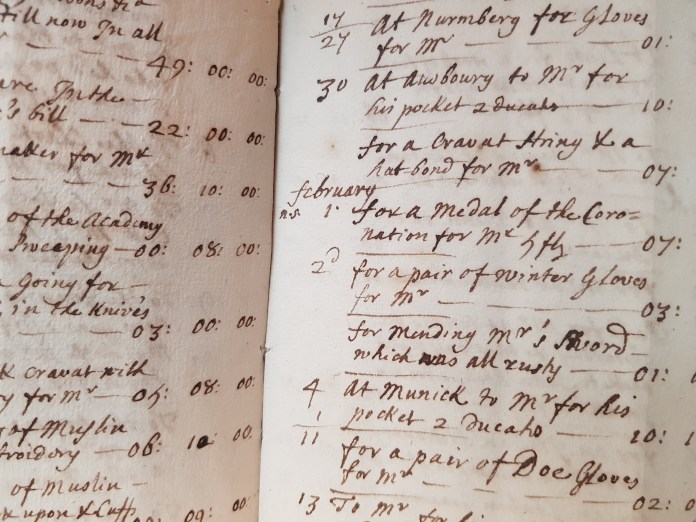 till now In all
49: 00: 00:
are In the
's bill 22: 00: 00:
maker for Mr
36: 10: 00:
of the Academy
Sweeping 00: 08: 00:
Going for
in the Knives
03: 00: 00:
Cravat with
for Mr 04: 08: 00:
of Muslin
06: 10 00:
of Muslin
upon & Cuffs
09: 00:
17/27 At Nurmberg for Gloves
for Mr 01:
30 At Awbourg to Mr for
his pocket 2 ducats 10:
for a Cravat string & a
hat bond for Mr 07:
february
n.s. 1. for a Medal of the Coro=
nation for Mr 07:
2d for a pair of Winter Gloves
for Mr 03:
for mending Mr's Sword
which was all rusty 01:
4 At Munick to Mr for his
pocket 2 ducats 10: 1
1/11 for a pair of Doe Gloves
for Mr 02:
13 To Mr